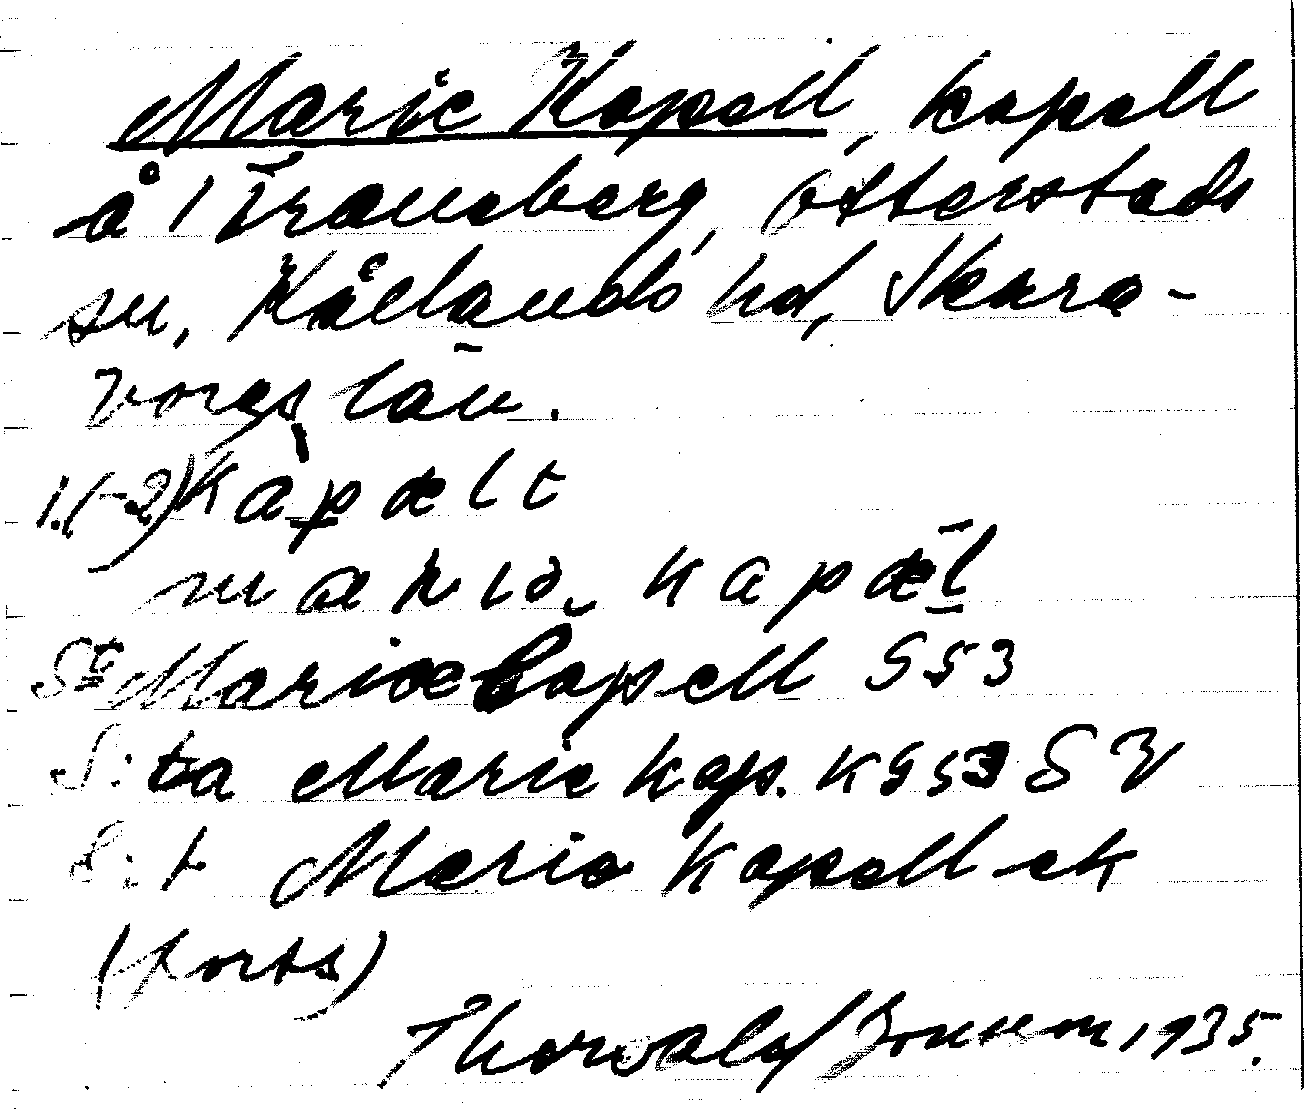 Marie Kapell, kapell
å Traneberg, Otterstads
sn, Kållands hd, Skara-
borgs län.
1.(-2) kapælt
mariа kapæl
S:t Mariæ Capell GS3
S:ta Marie kap. KGS3 SV
S:t Maria Kapell ek
(forts)
Thorvald Jonsson 1935.